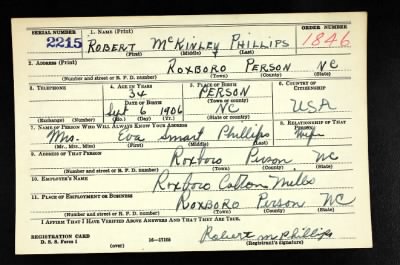 SERIAL NUMBER 1. NAME (Print) ORDER NUMBER
2215 ROBERT McKINLEY PHILLIPS 1846
(First) (Middle) (Last)
2. ADDRESS (Print)
ROXBORO PERSON NC
(Number and street or R. F. D. number) (Town) (County) (State)
3. TELEPHONE 4. AGE IN YEARS 5. PLACE OF BIRTH 6. COUNTRY OF CITIZENSHIP
34 PERSON
DATE OF BIRTH (Town or county)
Sept 6 1906 NC USA
(Exchange) (Number) (Mo.) (Day) (Yr.) (State or country)
7. NAME OF PERSON WHO WILL ALWAYS KNOW YOUR ADDRESS 8. RELATIONSHIP OF THAT PERSON
Mrs. Eva Smart Phillips Wife
(Mr., Mrs., Miss) (First) (Middle) (Last)
9. ADDRESS OF THAT PERSON
Roxboro Person NC
(Number and street or R. F. D. number) (Town) (County) (State)
10. EMPLOYER'S NAME
Roxboro Cotton Mills
11. PLACE OF EMPLOYMENT OR BUSINESS
ROXBORO Person NC
(Number and street or R. F. D. number) (Town) (County) (State)
I AFFIRM THAT I HAVE VERIFIED ABOVE ANSWERS AND THAT THEY ARE TRUE.
REGISTRATION CARD Robert M Phillips
D. S. S. Form 1 (over) 16—17105 (Registrant's signature)